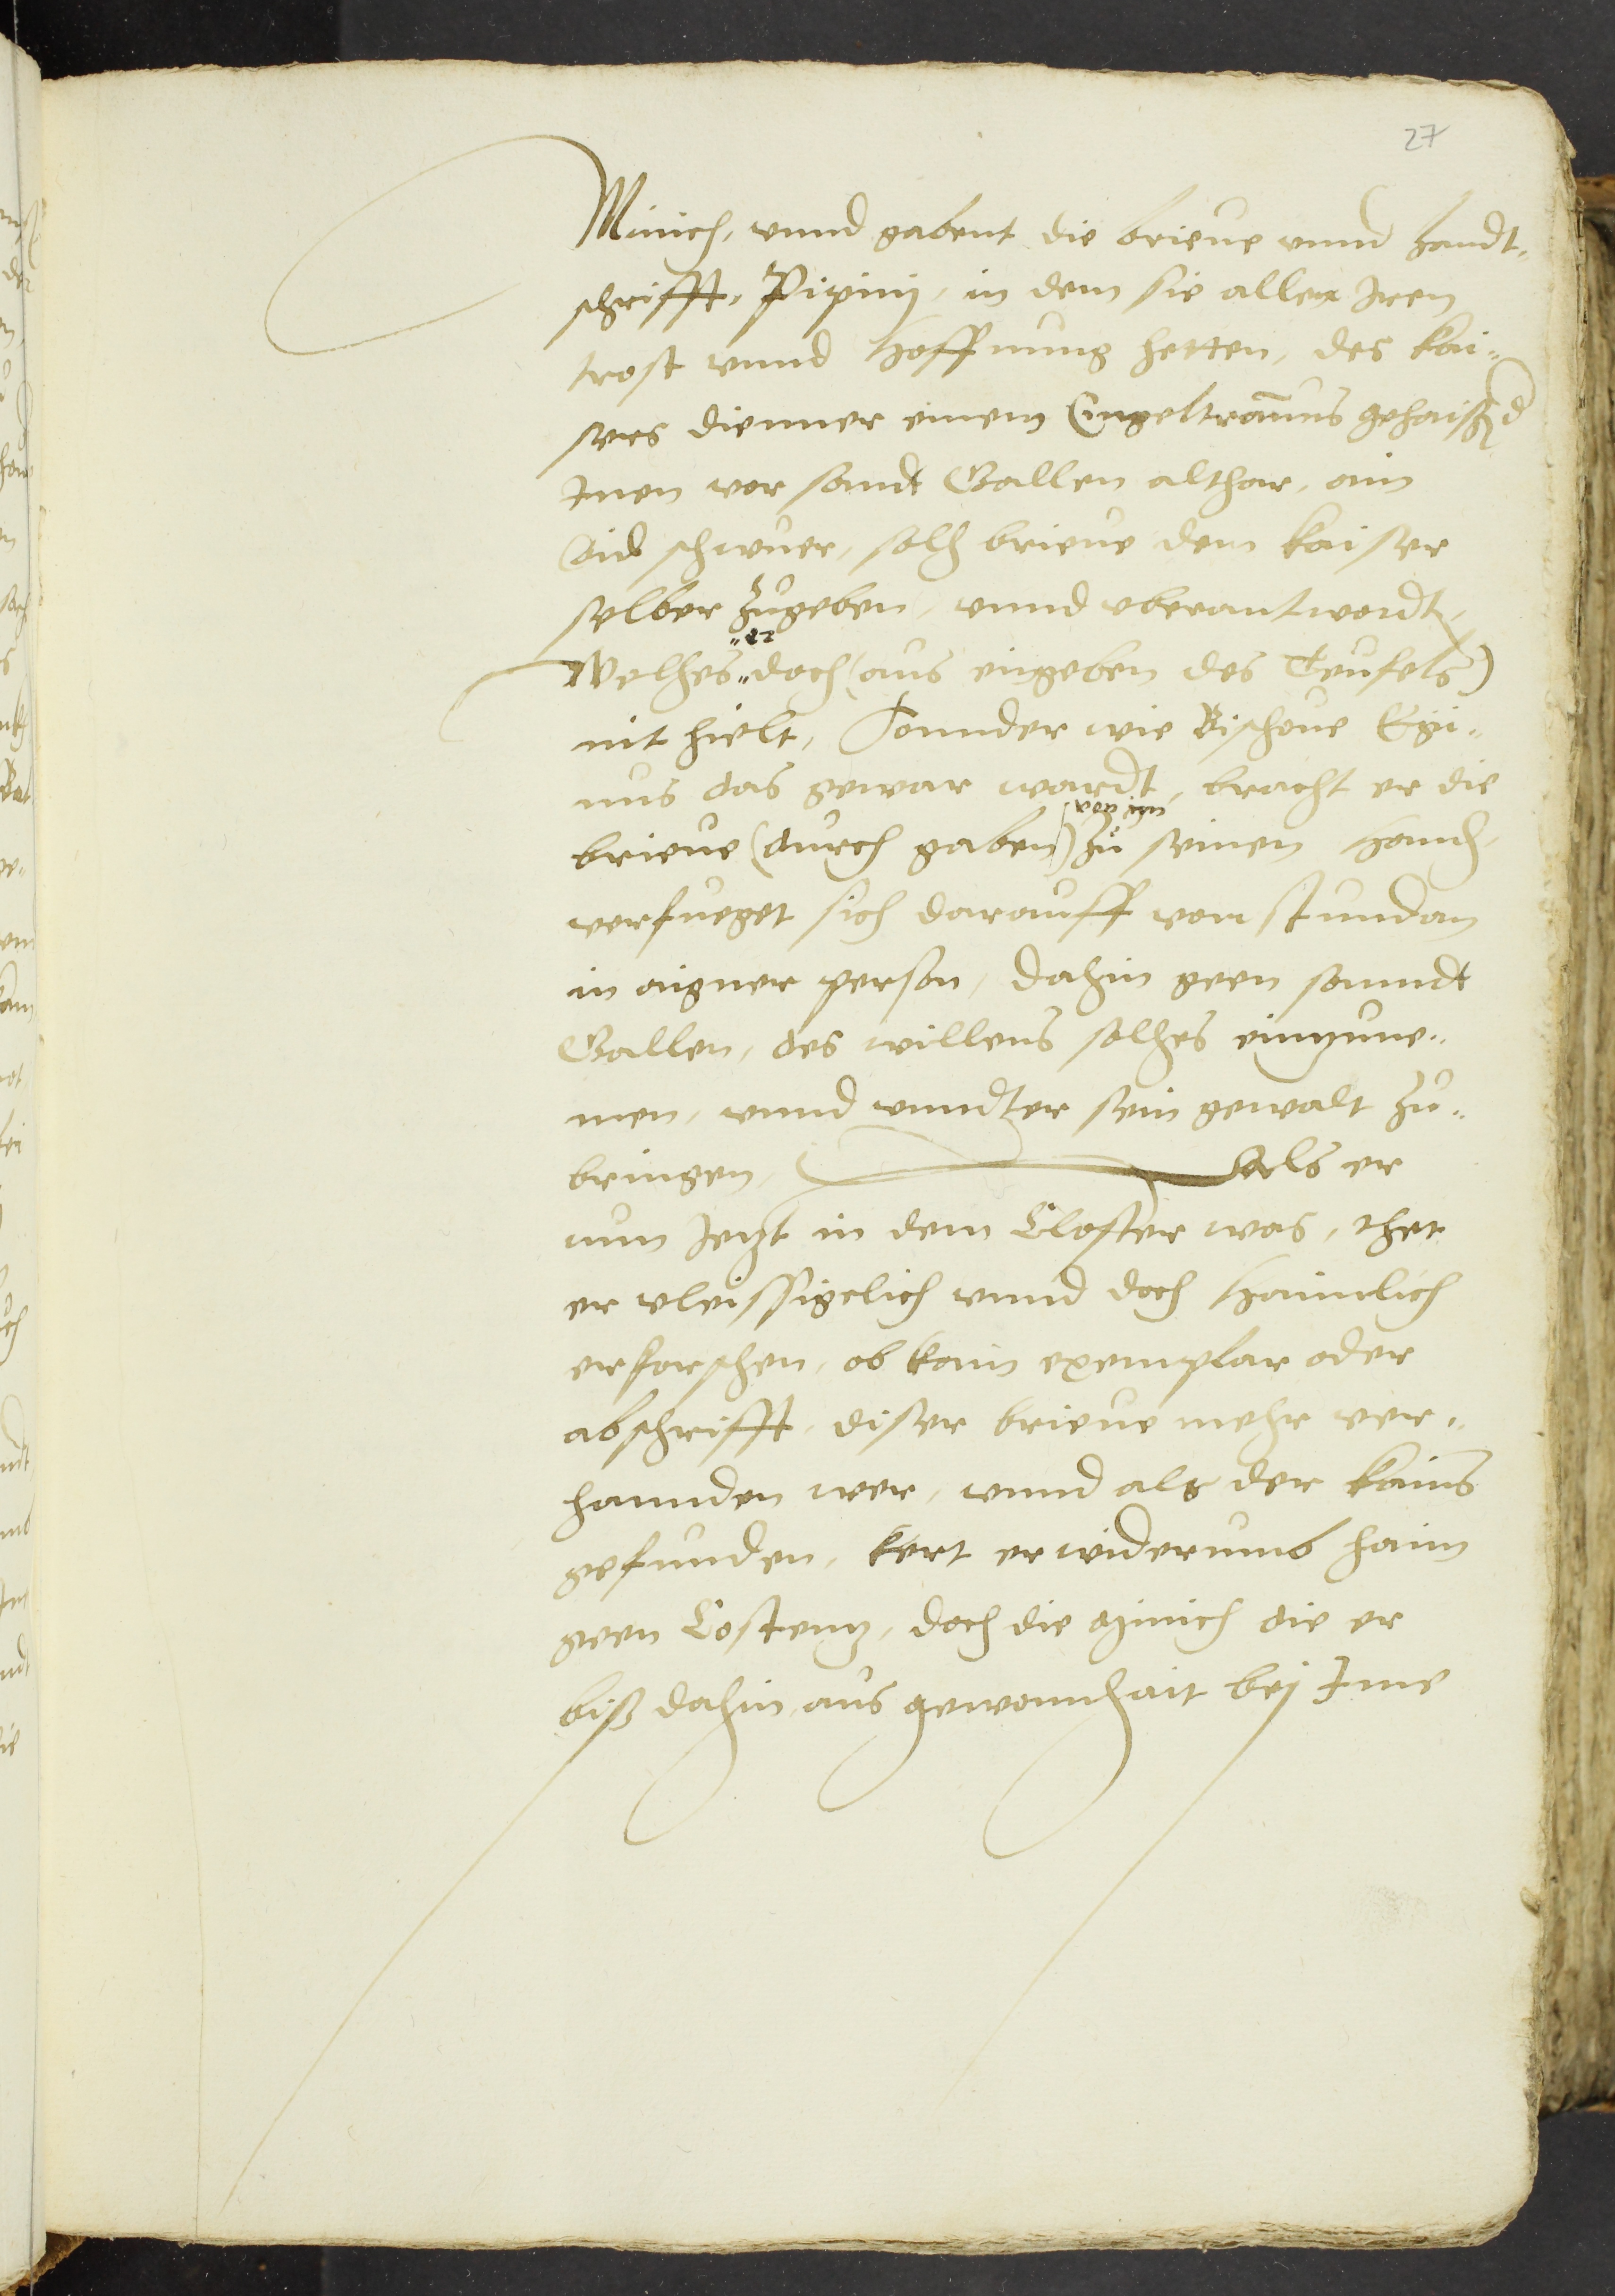 27
Minich, vnnd gabent die brieue vnnd handt-
schrifft, Pipinj, in dem sie allen Iren
trost vnnd hoffnung hetten, des kai-
sers dienner einem Engeltramus gehaissen, d
Inen vor sandt Gallen althar, ain
Aid schwuer, solh brieue dem kaiser
selber zugeben, vnnd vberantwordt,
Welhes er doch (aus eingeben des Teufels)
nit hielt, Sonnder wie Bischoue Egi-
nus das gewar wardt, bracht er die
brieue (durch gaben) zu seinen hannd,
verfueget sich darauff von stundan
in aigner person, dahin geen sanndt
Gallen, des willens solhes einzune-
men, vnnd vnndter sein gewalt zu-
bringen, Als er
nun Jetzt in dem Closter was, thet
er vleissigelich vnnd doch haimlich
erforschen, ob kain exemplar oder
abschrifft, diser brieue mehr ver-
hannden wer, vnnd als der kains
gefunden, kert er widerumb haim
geen Costentz, doch die Minich die er
biss dahin aus gewonnhait bej Ime